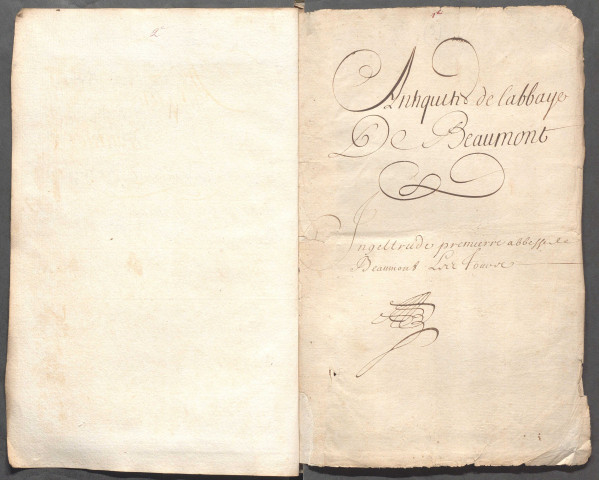 Antiquités de l'abbaye
De Beaumont
Ingeltrude premierre abbesse de
Beaumont Lez Tours